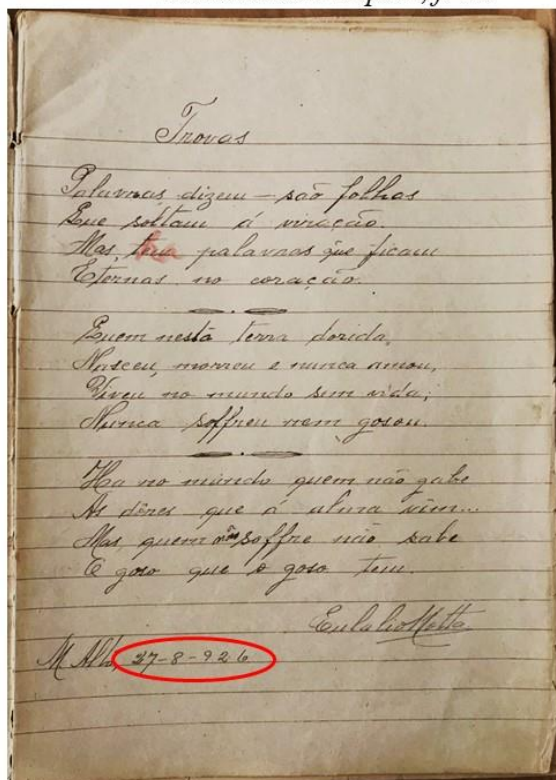 Trovas
Palavras dizem – são folhas
Que soltam á viração.
Mas, palavras que ficam
Eternas no coração.
Quem nesta terra dorida,
Nasceu, morreu e nunca amou,
Viveu no mundo sem vida;
Nunca soffreu nem gosou.
Ha no mundo quem não gabe
As dôres que á alma vem...
Mas, quem não soffre não sabe
O goso que o goso tem.
Eulalio Motta
M. Alto, 27-8-926